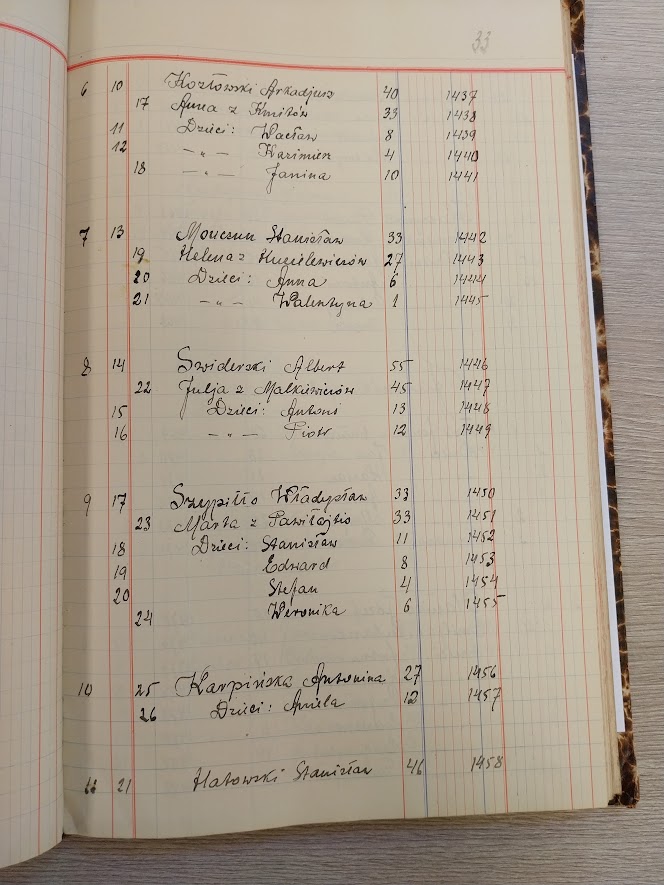 33
6 10 Kozłowski Arkadjusz 40 1437
17 Anna z Kmitów 33 1438
11 Dzieci: Wacław 8 1439
12 — „ — Kazimierz 4 1440
18 — „ — Janina 10 1441
7 13 Monczun Stanisław 33 1442
19 Helena z Kucielewiczów 27 1443
20 Dzieci: Anna 6 1444
21 — „ — Walentyna 1 1445
8 14 Szwiderski Albert 55 1446
22 Julja z Malkiewiczów 45 1447
15 Dzieci: Antoni 13 1448
16 — „ — Piotr 12 1449
9 17 Szypiłło Władysław 33 1450
23 Marta z Pawiłojtio 33 1451
18 Dzieci: Stanisław 11 1452
19 Edward 8 1453
20 Stefan 4 1454
24 Weronika 6 1455
10 25 Karpińska Antonina 27 1456
26 Dzieci: Aniela 12 1457
11 21 Hatowski Stanisław 46 1458